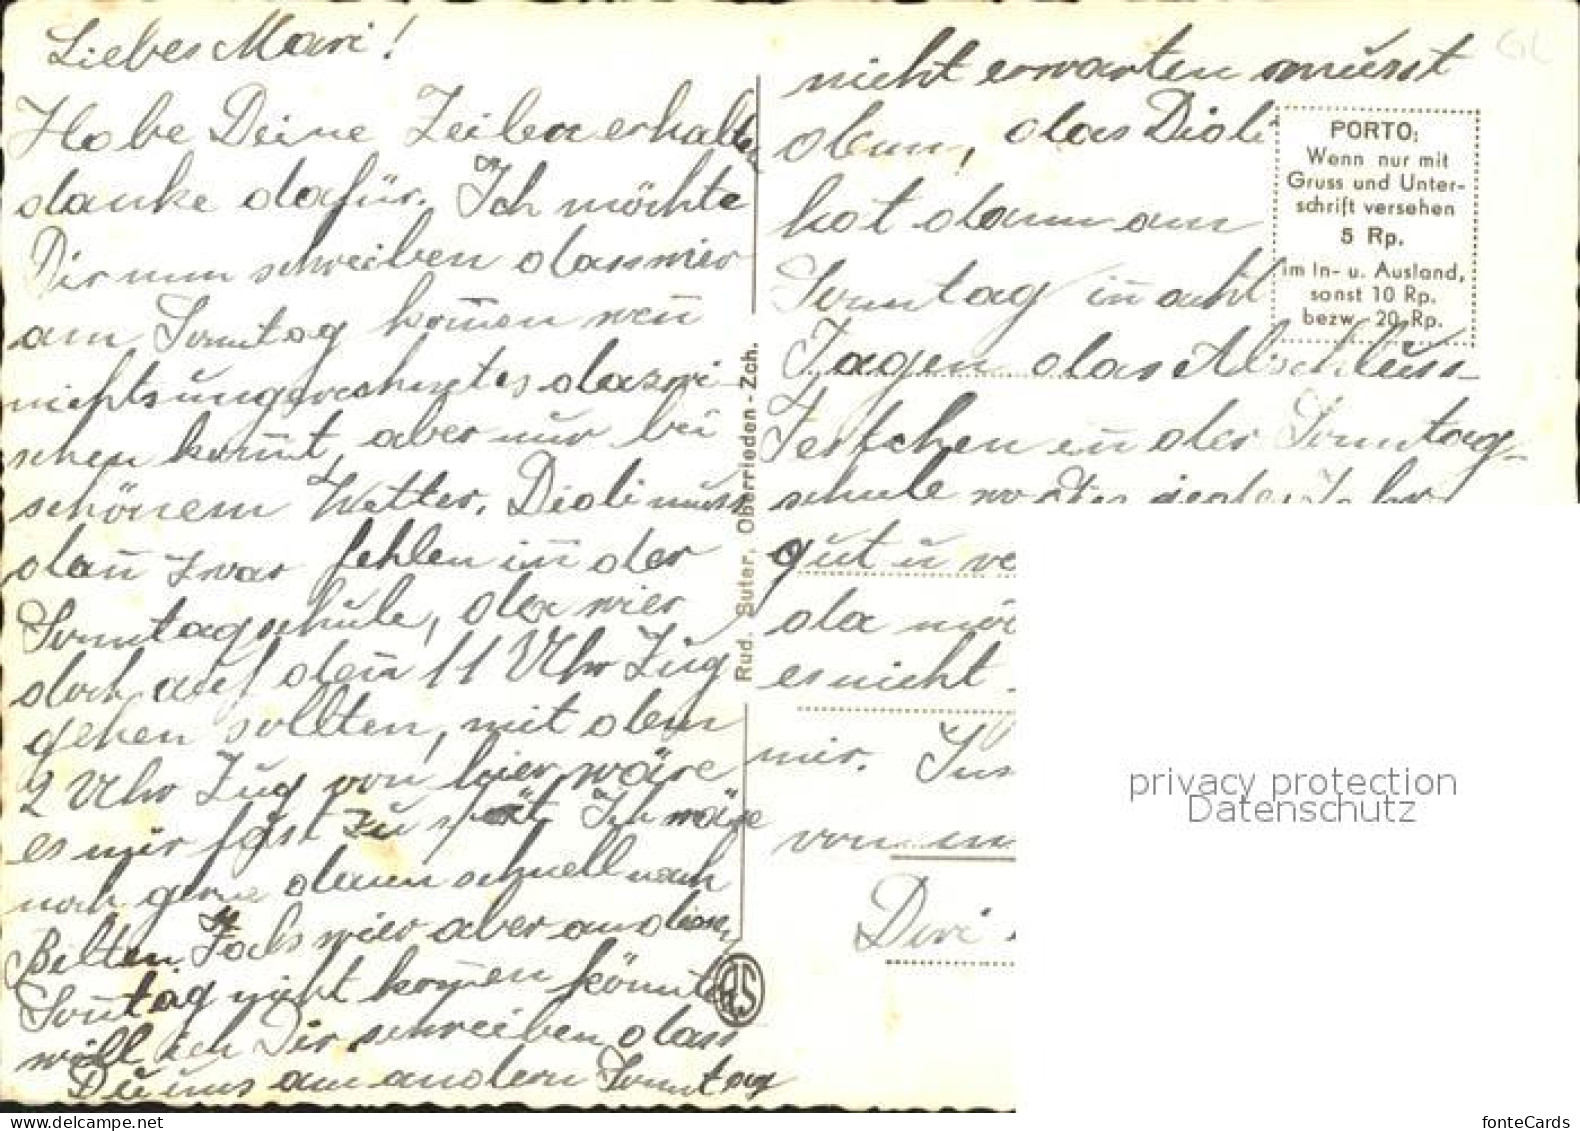 Liebes Mari!
Habe Deine Zeilen erhalten
danke dafür. Ich möchte
Dir nun schreiben dass wier
am Sonntag kom̅en wen̅
nichts ungerechnetes dazwi-
schen kom̅t, aber nur bei
schönem Wetter. Dioli muss
dan̅ zwar fehlen in̅ der
Sonntagschule, da wier
doch auf den̅ 11 Uhr Zug
gehen sollten, mit dem
2 Uhr Zug von hier, wäre
es mir fast zu spät. Ich wäre
noch gerne dann schnell nach
Bilten. Fals wier aber an diesem
Son̅tag nicht kom̅en könnten
will ich Dir schreiben dass
Du uns am andern Sonntag
nicht erwarten müsst
denn, das Dioli
hat dann am
Sonntag in̅ acht
Tagen das Abschluss-
Festchen in̅ der Sonntag-
schule wo
gut u
da
es nicht
mir.
von
PORTO:
Wenn nur mit
Gruss und Unter-
schrift versehen
5 Rp.
im In- u. Ausland,
sonst 10 Rp.
bezw. 20 Rp.
Rud. Suter, Oberrieden-Zch.
RS
privacy protection
Datenschutz
fonteCards